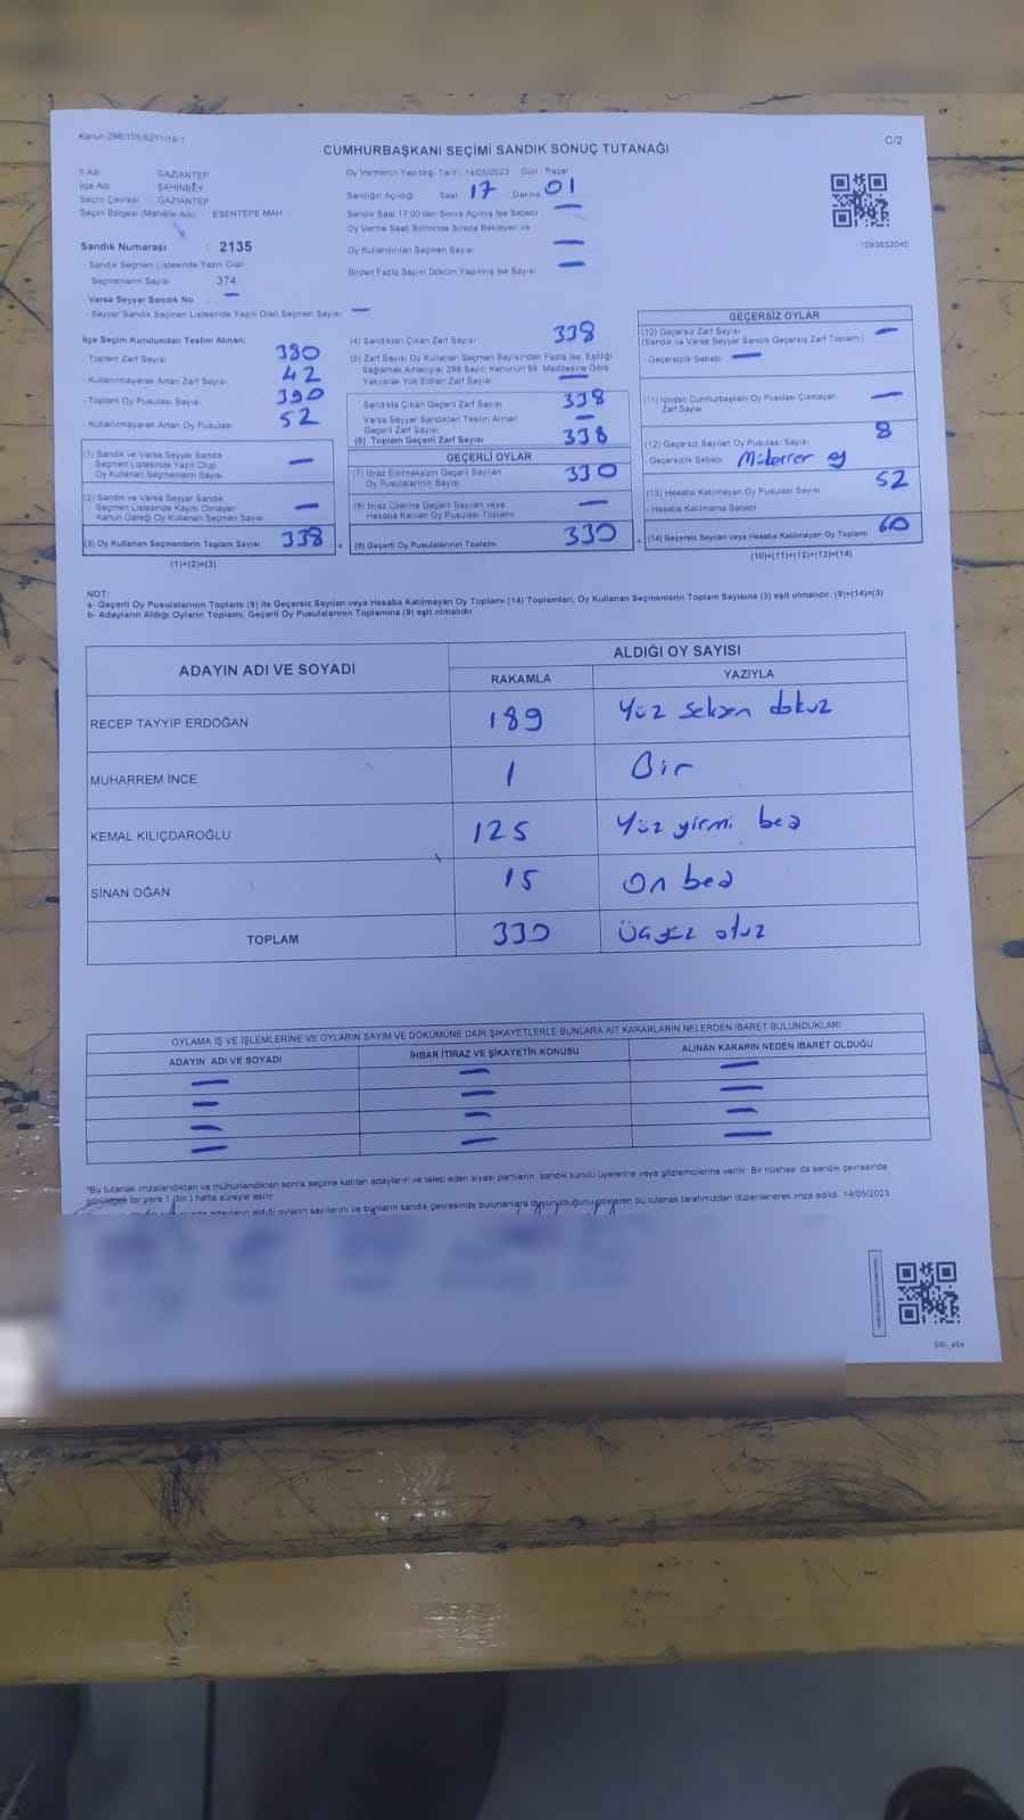 Kanun 298/105-6271/16-1
C/2
CUMHURBAŞKANI SEÇİMİ SANDIK SONUÇ TUTANAĞI
İl Adı GAZİANTEP
İlçe Adı ŞAHİNBEY
Seçim Çevresi GAZİANTEP
Seçim Bölgesi (Mahalle Adı) ESENTEPE MAH
Sandık Numarası : 2135
Sandık Seçmen Listesinde Yazılı Olan
Seçmenlerin Sayısı 374
Varsa Seyyar Sandık No —
- Seyyar Sandık Seçmen Listesinde Yazılı Olan Seçmen Sayısı —
Oy Vermenin Yapıldığı Tarih 14/05/2023 Gün : Pazar
Sandığın Açıldığı Saat 17 Dakika 01
Sandık Saat 17.00'den Sonra Açılmış İse Sebebi —
Oy Verme Saati Bitiminde Sırada Bekleyen ve
Oy Kullandırılan Seçmen Sayısı —
Birden Fazla Sayım Döküm Yapılmış İse Sayısı —
1093852040
İlçe Seçim Kurulundan Teslim Alınan;
- Toplam Zarf Sayısı 380
- Kullanılmayarak Artan Zarf Sayısı 42
- Toplam Oy Pusulası Sayısı 390
- Kullanılmayarak Artan Oy Pusulası 52
(1) Sandık ve Varsa Seyyar Sandık
Seçmen Listesinde Yazılı Olup
Oy Kullanan Seçmenlerin Sayısı —
(2) Sandık ve Varsa Seyyar Sandık
Seçmen Listesinde Kaydı Olmayan
Kanun Gereği Oy Kullanan Seçmen Sayısı —
(3) Oy Kullanan Seçmenlerin Toplam Sayısı 338
(1)+(2)=(3)
(4) Sandıktan Çıkan Zarf Sayısı 338
(5) Zarf Sayısı Oy Kullanan Seçmen Sayısından Fazla İse, Eşitliği
Sağlamak Amacıyla, 298 Sayılı Kanunun 98. Maddesine Göre
Yakılarak Yok Edilen Zarf Sayısı —
Sandıkta Çıkan Geçerli Zarf Sayısı 338
Varsa Seyyar Sandıktan Teslim Alınan
Geçerli Zarf Sayısı —
(6) Toplam Geçerli Zarf Sayısı 338
GEÇERLİ OYLAR
(7) İtiraz Edilmeksizin Geçerli Sayılan
Oy Pusulalarının Sayısı 330
(8) İtiraz Üzerine Geçerli Sayılan veya
Hesaba Katılan Oy Pusulası Toplamı —
(9) Geçerli Oy Pusulalarının Toplamı 330
GEÇERSİZ OYLAR
(10) Geçersiz Zarf Sayısı —
(Sandık ve Varsa Seyyar Sandık Geçersiz Zarf Toplamı)
- Geçersizlik Sebebi —
(11) İçinden Cumhurbaşkanı Oy Pusulası Çıkmayan
Zarf Sayısı —
(12) Geçersiz Sayılan Oy Pusulası Sayısı 8
Geçersizlik Sebebi Mükerrer oy
(13) Hesaba Katılmayan Oy Pusulası Sayısı 52
- Hesaba Katılmama Sebebi
(14) Geçersiz Sayılan veya Hesaba Katılmayan Oy Toplamı 60
(10)+(11)+(12)+(13)=(14)
NOT:
a- Geçerli Oy Pusulalarının Toplamı (9) ile Geçersiz Sayılan veya Hesaba Katılmayan Oy Toplamı (14) Toplamları, Oy Kullanan Seçmenlerin Toplam Sayısına (3) eşit olmalıdır. (9)+(14)=(3)
b- Adayların Aldığı Oyların Toplamı, Geçerli Oy Pusulalarının Toplamına (9) eşit olmalıdır.
ADAYIN ADI VE SOYADI
ALDIĞI OY SAYISI
RAKAMLA YAZIYLA
RECEP TAYYİP ERDOĞAN 189 Yüz seksen dokuz
MUHARREM İNCE 1 Bir
KEMAL KILIÇDAROĞLU 125 Yüz yirmi beş
SİNAN OĞAN 15 On beş
TOPLAM 330 Üçyüz otuz
OYLAMA İŞ VE İŞLEMLERİNE VE OYLARIN SAYIM VE DÖKÜMÜNE DAİR ŞİKAYETLERLE BUNLARA AİT KARARLARIN NELERDEN İBARET BULUNDUKLARI
ADAYIN ADI VE SOYADI İHBAR İTİRAZ VE ŞİKAYETİN KONUSU ALINAN KARARIN NEDEN İBARET OLDUĞU
— — —
— — —
— — —
— — —
"Bu tutanak imzalandıktan ve mühürlendikten sonra seçime katılan adayların ve talep eden siyasi partilerin, sandık kurulu üyelerine veya gözlemcilerine verilir. Bir nüshası da sandık çevresinde
görülecek bir yere 1 (bir) hafta süreyle asılır.
adayların aldığı oyların sayılarını ve bunların sandık çevresinde bulunanlara duyurulduğunu gösteren bu tutanak tarafımızdan düzenlenerek imza edildi. 14/05/2023